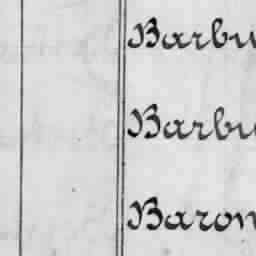 Barbu
Barbu
Baron